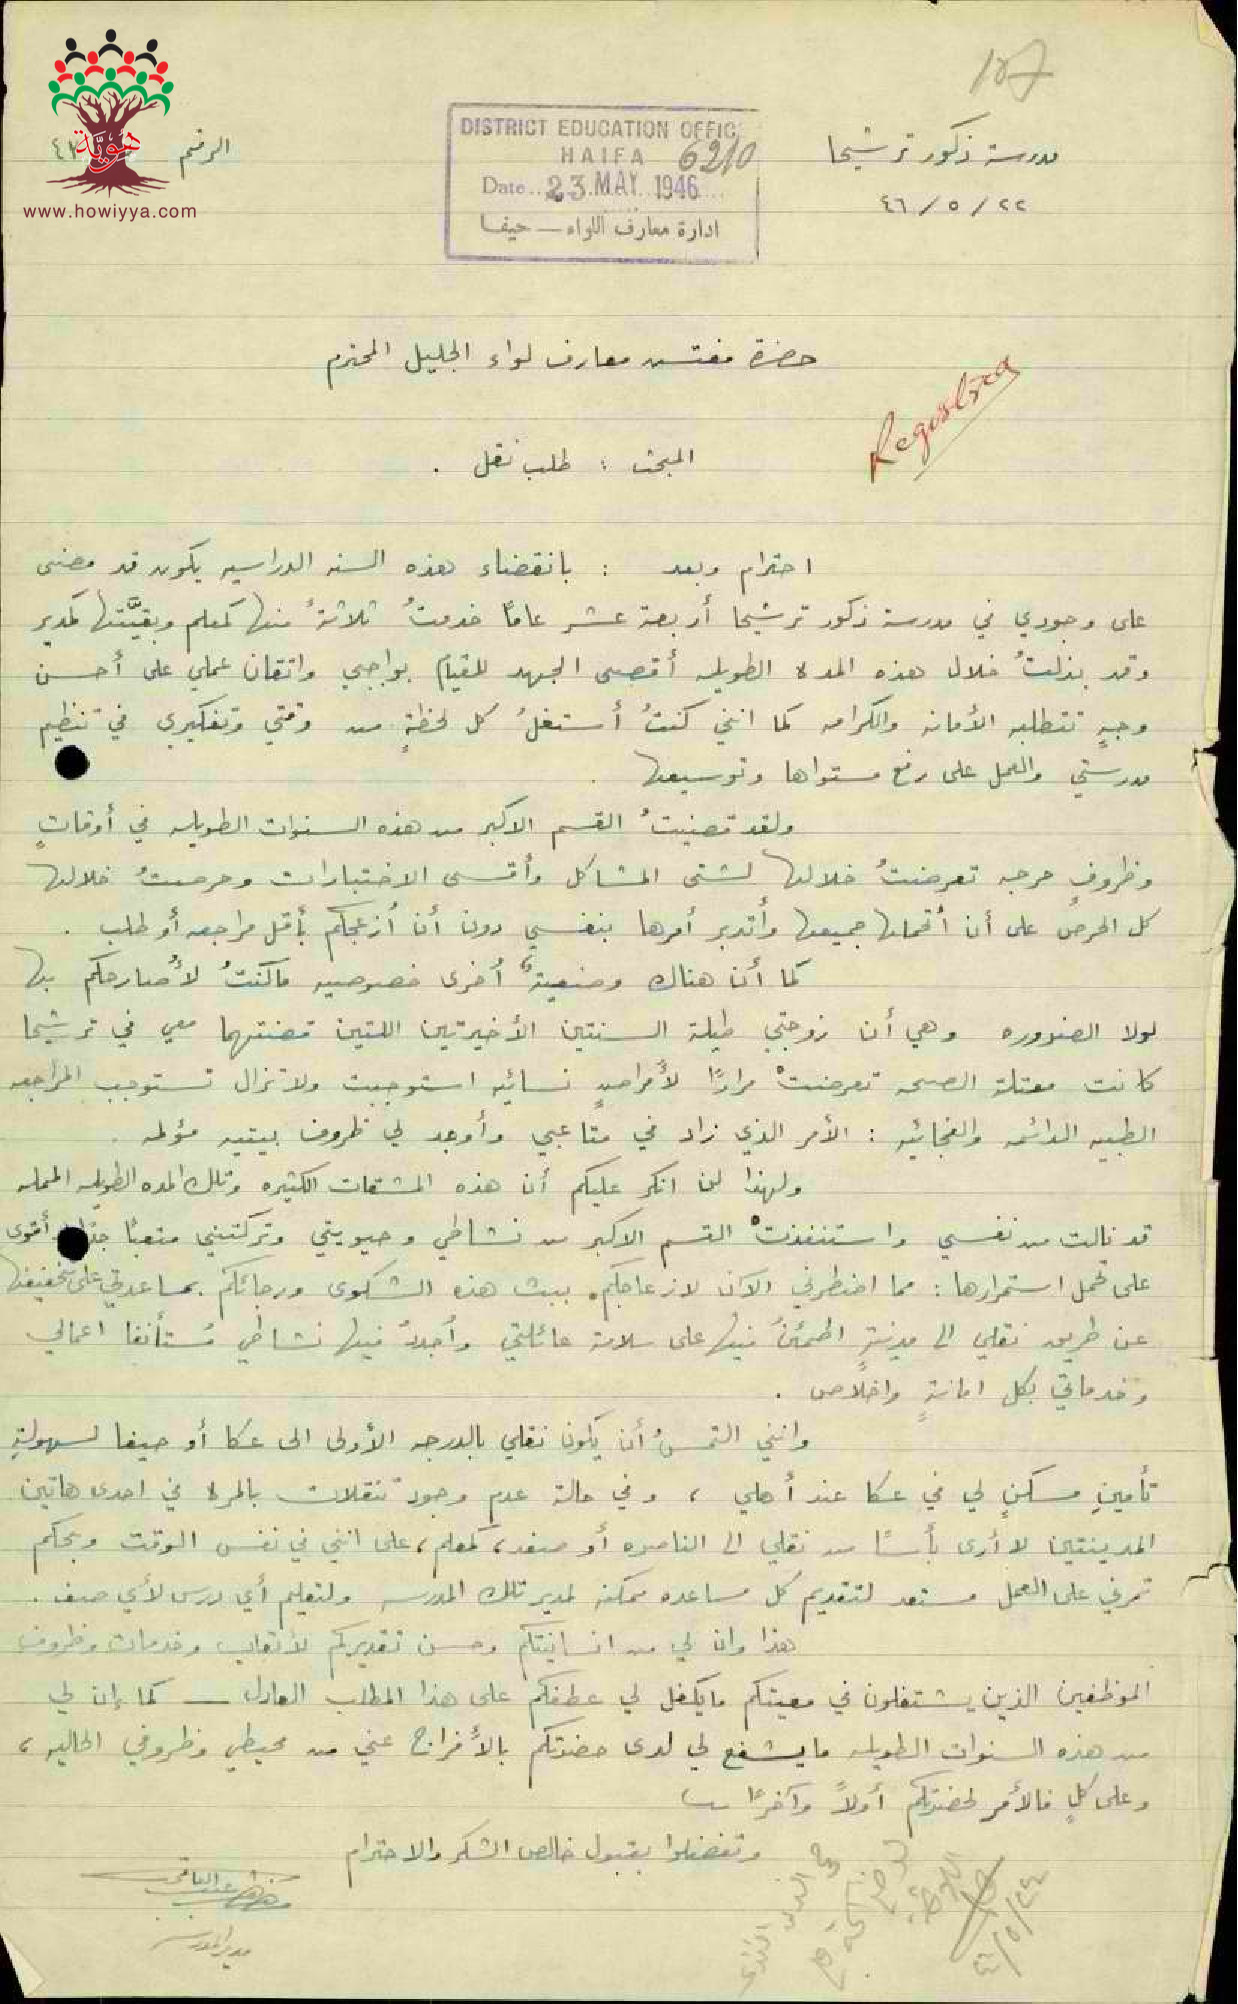 187
مدرسة ذكور ترشيحا
٢٢ / ٥ / ٤٦
DISTRICT EDUCATION OFFIC
HAIFA 6210
Date 23 MAY 1946
ادارة معارف اللواء — حيفا
الرقم
هوية
www.howiyya.com
حضرة مفتش معارف لواء الجليل المحترم
المبحث : طلب نقل .
احترام وبعد : بانقضاء هذه السنه الدراسيه يكون قد مضى
على وجودي في مدرسة ذكور ترشيحا أربعة عشر عامًا خدمتُ ثلاثةُ منها كمعلم وبقيَّتها كمدير
وقد بذلتُ خلال هذه المدة الطويله أقصى الجهد للقيام بواجبي واتقان عملي على أحسن
وجهٍ تتطلبه الأمانه والكرامه كما انني كنتُ أستغلُ كل لحظةٍ من وقتي وتفكيري في تنظيم
مدرستي والعمل على رفع مستواها وتوسيعها .
ولقد قضيتُ القسم الاكبر من هذه السنوات الطويله في أوقاتٍ
وظروفٍ حرجه تعرضتُ خلالها لشتى المشاكل وأقسى الاختبارات وحرصتُ خلالها
كل الحرص على أن أتحملها جميعها وأتدبر أمرها بنفسي دون أن أزعجكم بأقل مراجعه أو طلب .
كما أن هناك وضعيةً أخرى خصوصيه ما كنتُ لأصارحكم بها
لولا الضروره وهي أن زوجتي طيلة السنتين الأخيرتين اللتين قضتهما معي في ترشيحا
كانت معتلة الصحه تعرضتْ مرارًا لأمراضٍ نسائيه استوجبت ولا تزال تستوجب المراجعه
الطبيه الدائمه والفجائيه : الأمر الذي زاد في متاعبي وأوجد لي ظروف بيتيه مؤلمه .
ولهذا لن انكر عليكم أن هذه المشقات الكثيره وتلك المده الطويله الممله
قد نالت من نفسي واستنفذتْ القسم الاكبر من نشاطي وحيويتي وتركتني متعبًا جدًا أقوى
على تحمل استمرارها : مما اضطرني الآن لازعاجكم ببث هذه الشكوى ورجائكم بمساعدتي على تخفيفها
عن طريق نقلي الى مدينةٍ اطمئنُ فيها على سلامة عائلتي وأجددُ فيها نشاطي مُستأنفا اعمالي
وخدماتي بكل امانةٍ واخلاص .
وانني التمسُ أن يكون نقلي بالدرجه الأولى الى عكا أو حيفا لسهولةِ
تأمينِ مسكنٍ لي في عكا عند أهلي ، وفي حالة عدم وجود تنقلات بالمرة في احدى هاتين
المدينتين لا أرى بأسًا من نقلي الى الناصره أو صفد، كمعلم، على انني في نفس الوقت وبحكم
تمرني على العمل مستعد لتقديم كل مساعده ممكنه لمدير تلك المدرسه ولتعليم أي درس لأي صف .
هذا وان لي من انسانيتكم وحسن تقديركم لأتعاب وخدمات وظروف
الموظفين الذين يشتغلون في معيتكم ما يكفل لي عطفكم على هذا المطلب العادل — كما إن لي
من هذه السنوات الطويله ما يشفع لي لدى حضرتكم بالأفراج عني من محيطي وظروفي الحاليه ،
وعلى كلٍ فالأمر لحضرتكم أولاً وآخرًا
وتفضلوا بقبول خالص الشكر والاحترام
مدير المدرسه
٤٦/٥/٢٤
Registry